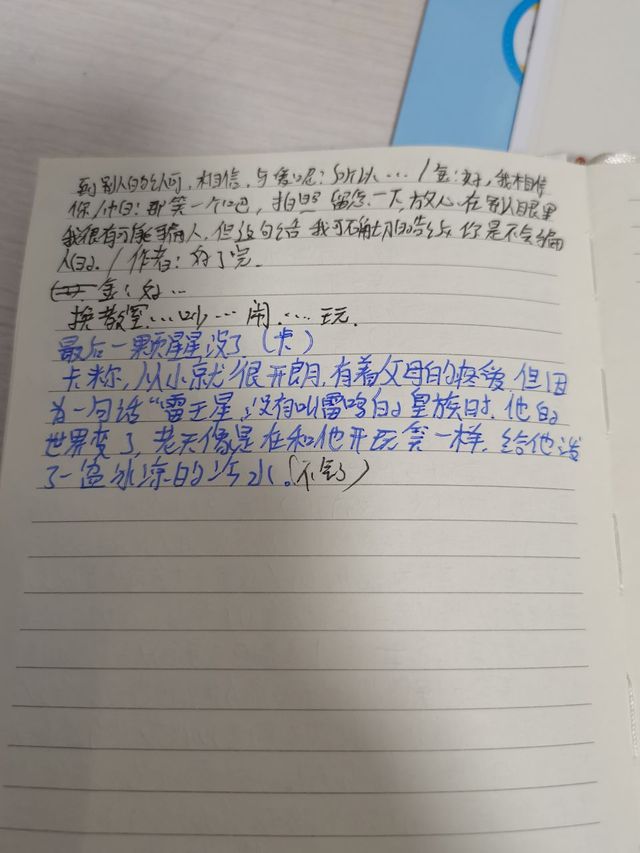 到别人的认可,相信,与爱呢?所以…/金:好,我相信
你/中白:那笑一个吧,拍照留念一下,放心.在别人眼里
我很有可能骗人,但这句话我可不确切的告诉你是不会骗
人的./作者:好了完.
金:好…
换教室…吵…闹…玩.
最后一颗星星没了(卡)
卡米尔,从小就很开朗,有着父母的疼爱,但因
为一句话“雷王星,没有叫雷鸣的皇族时.他的
世界变了,老天像是在和他开玩笑一样.给他泼
了一盆冰凉的冷水.(不写了)